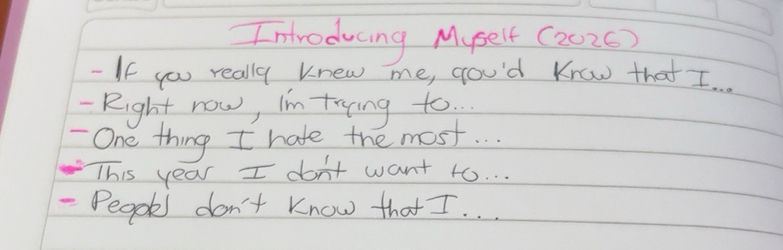 Introducing Myself (2026)
- If you really knew me, you'd know that I...
- Right now, I'm trying to...
- One thing I hate the most...
- This year I don't want to...
- People don't know that I...